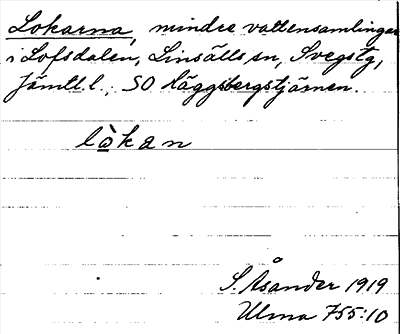 Lokarna, mindre vattensamlingar
i Lofsdalen, Linsälls sn, Svegs tg,
Jämtl. l., SO Häggsbergstjärnen.
lòkan
S. Åsander 1919
Ulma 755:10